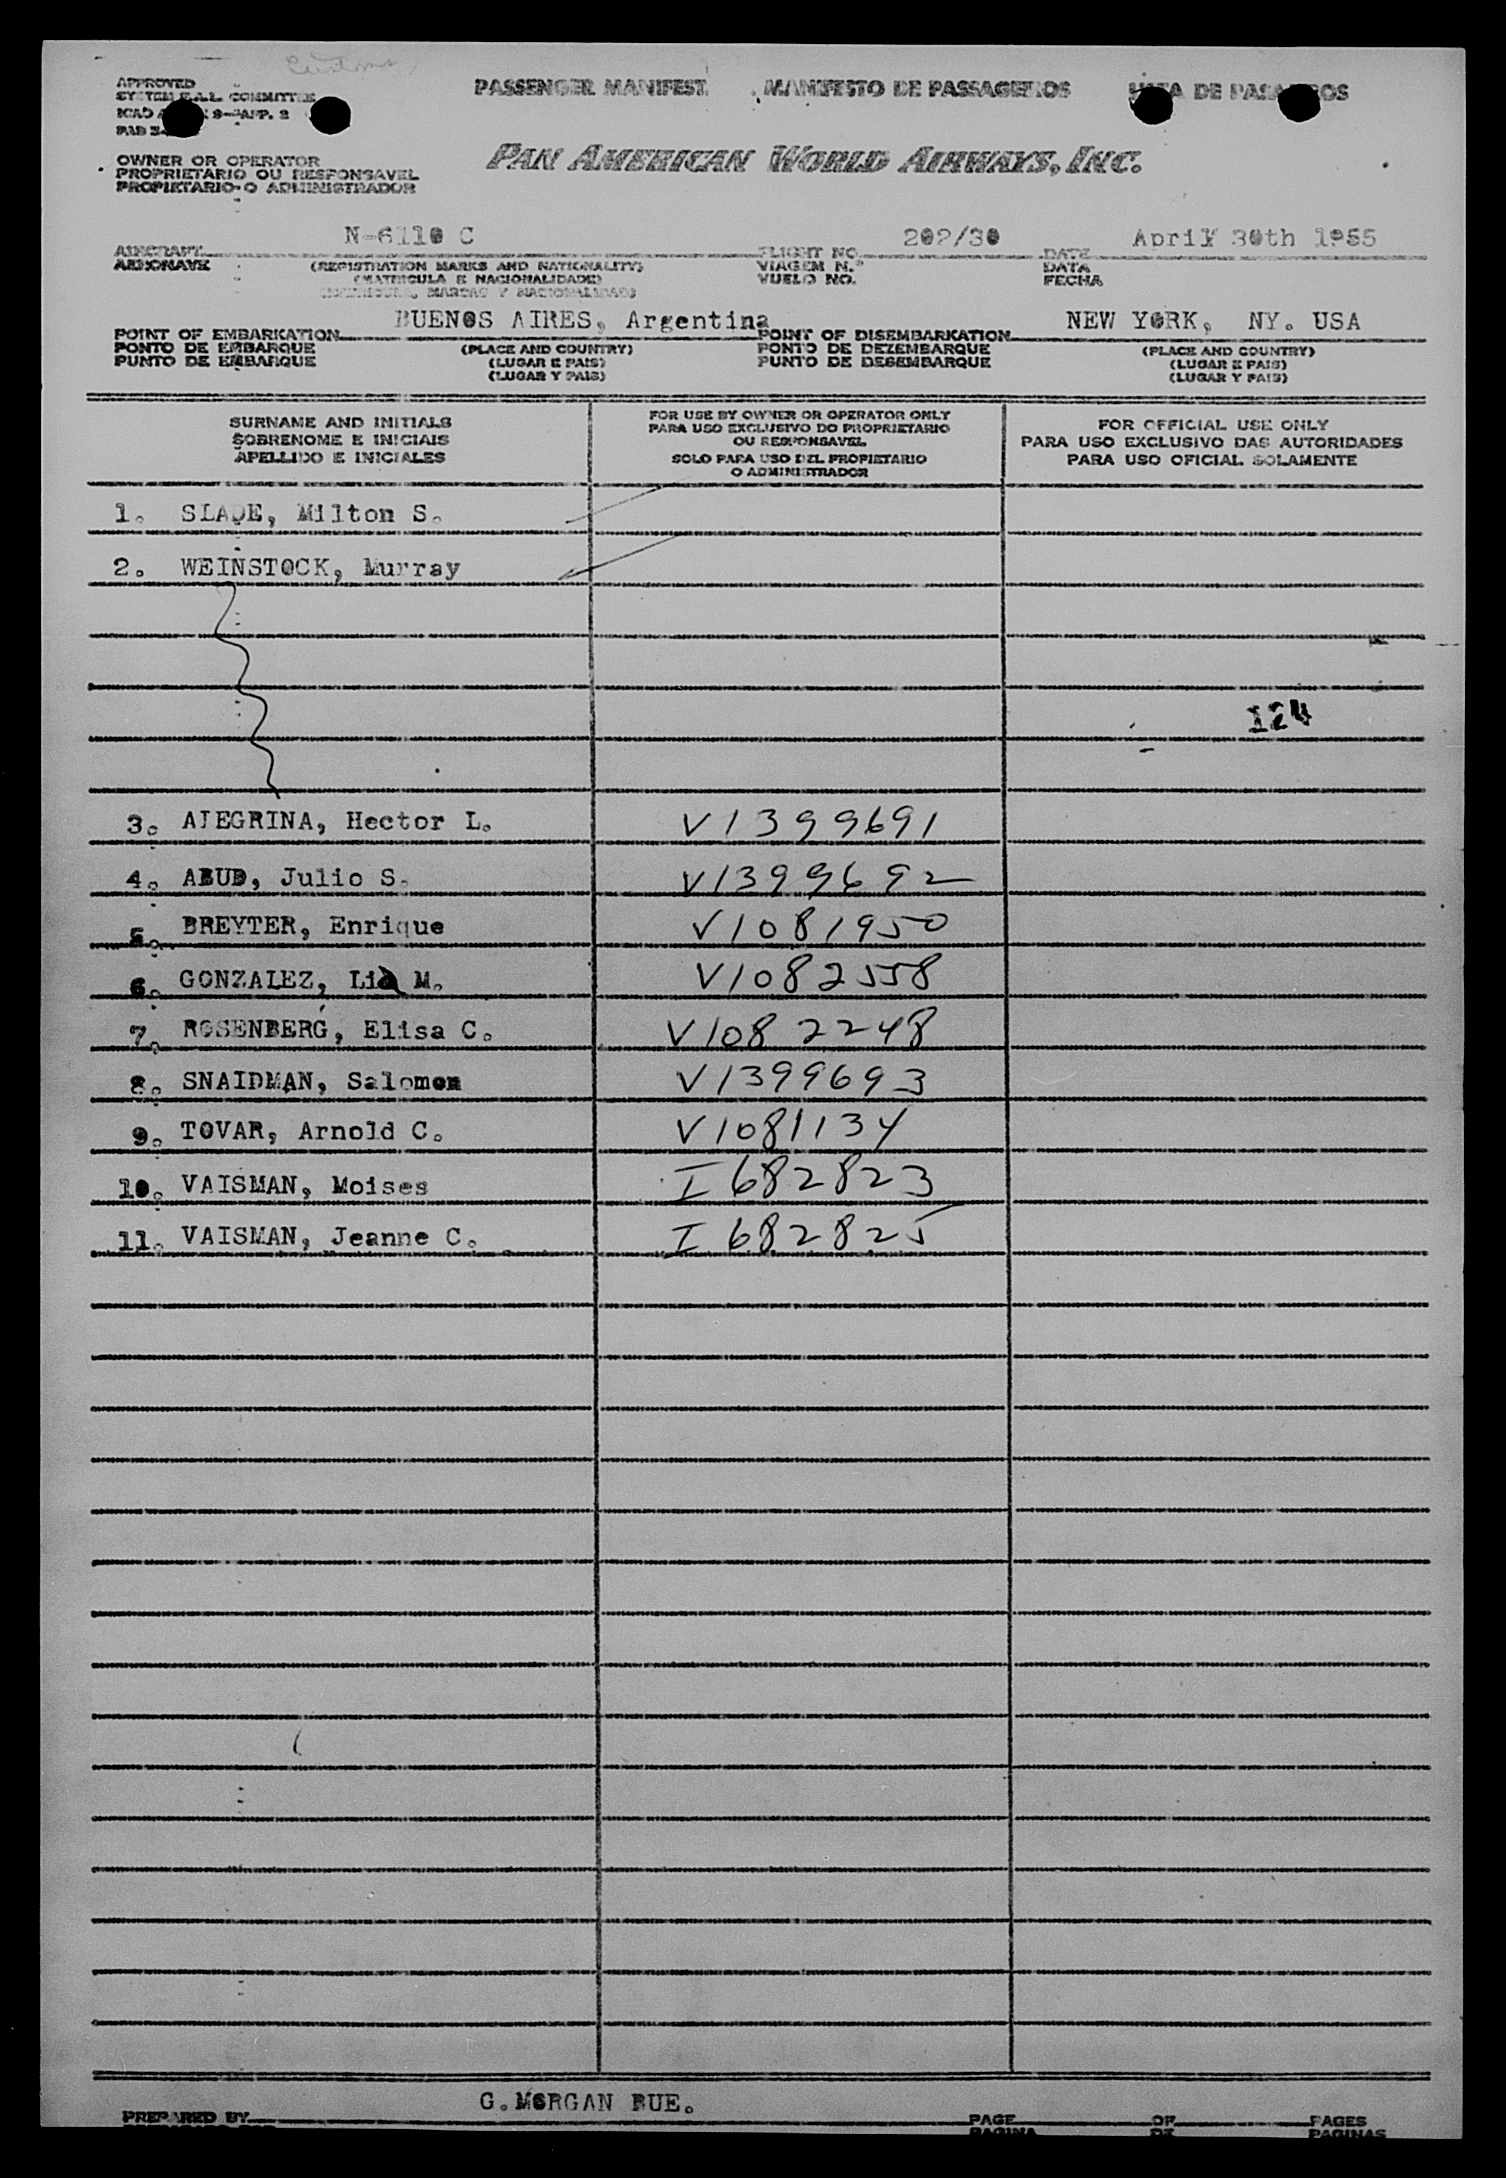 Customs
APPROVED
SYSTEM E.A.L. COMMITTEE
ICAO 9-APP. 2
PAB
PASSENGER MANIFEST MANIFESTO DE PASSAGEIROS LISTA DE PASAJEROS
OWNER OR OPERATOR
PROPRIETARIO OU RESPONSAVEL
PROPIETARIO O ADMINISTRADOR
PAN AMERICAN WORLD AIRWAYS, INC.
N-6110 C 202/30 April 30th 1955
AIRCRAFT FLIGHT NO. DATE
AERONAVE (REGISTRATION MARKS AND NATIONALITY) VIAGEM N.º DATA
(MATRICULA E NACIONALIDADE) VUELO NO. FECHA
(MATRICULA, MARCAS Y NACIONALIDAD)
BUENOS AIRES, Argentina NEW YORK, NY. USA
POINT OF EMBARKATION POINT OF DISEMBARKATION
PONTO DE EMBARQUE (PLACE AND COUNTRY) PONTO DE DEZEMBARQUE (PLACE AND COUNTRY)
PUNTO DE EMBARQUE (LUGAR E PAIS) PUNTO DE DESEMBARQUE (LUGAR E PAIS)
(LUGAR Y PAIS) (LUGAR Y PAIS)
SURNAME AND INITIALS
SOBRENOME E INICIAIS
APELLIDO E INICIALES
FOR USE BY OWNER OR OPERATOR ONLY
PARA USO EXCLUSIVO DO PROPRIETARIO
OU RESPONSAVEL
SOLO PARA USO DEL PROPIETARIO
O ADMINISTRADOR
FOR OFFICIAL USE ONLY
PARA USO EXCLUSIVO DAS AUTORIDADES
PARA USO OFICIAL SOLAMENTE
1. SLADE, Milton S.
2. WEINSTOCK, Murray
124
3. ALEGRINA, Hector L. V1399691
4. ABUD, Julio S. V1399692
5. BREYTER, Enrique V1081950
6. GONZALEZ, Lia M. V1082558
7. ROSENBERG, Elisa C. V1082248
8. SNAIDMAN, Salomon V1399693
9. TOVAR, Arnold C. V1081134
10. VAISMAN, Moises I 682823
11. VAISMAN, Jeanne C. I 682825
G. MORGAN RUE.
PREPARED BY PAGE OF PAGES
PAGINA DE PAGINAS